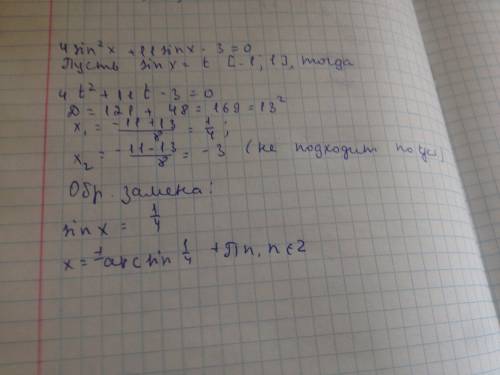 4 sin² x + 11 sin x - 3 = 0
Пусть sin x = t [-1, 1], тогда
4 t² + 11 t - 3 = 0
D = 121 + 48 = 169 = 13²
x₁ = (-11+13)/8 = 1/4;
x₂ = (-11-13)/8 = -3 (не подходит по усл)
Обр. замена:
sin x = 1/4
x = ⁻¹ arcsin 1/4 + Пn, n ∈ Z